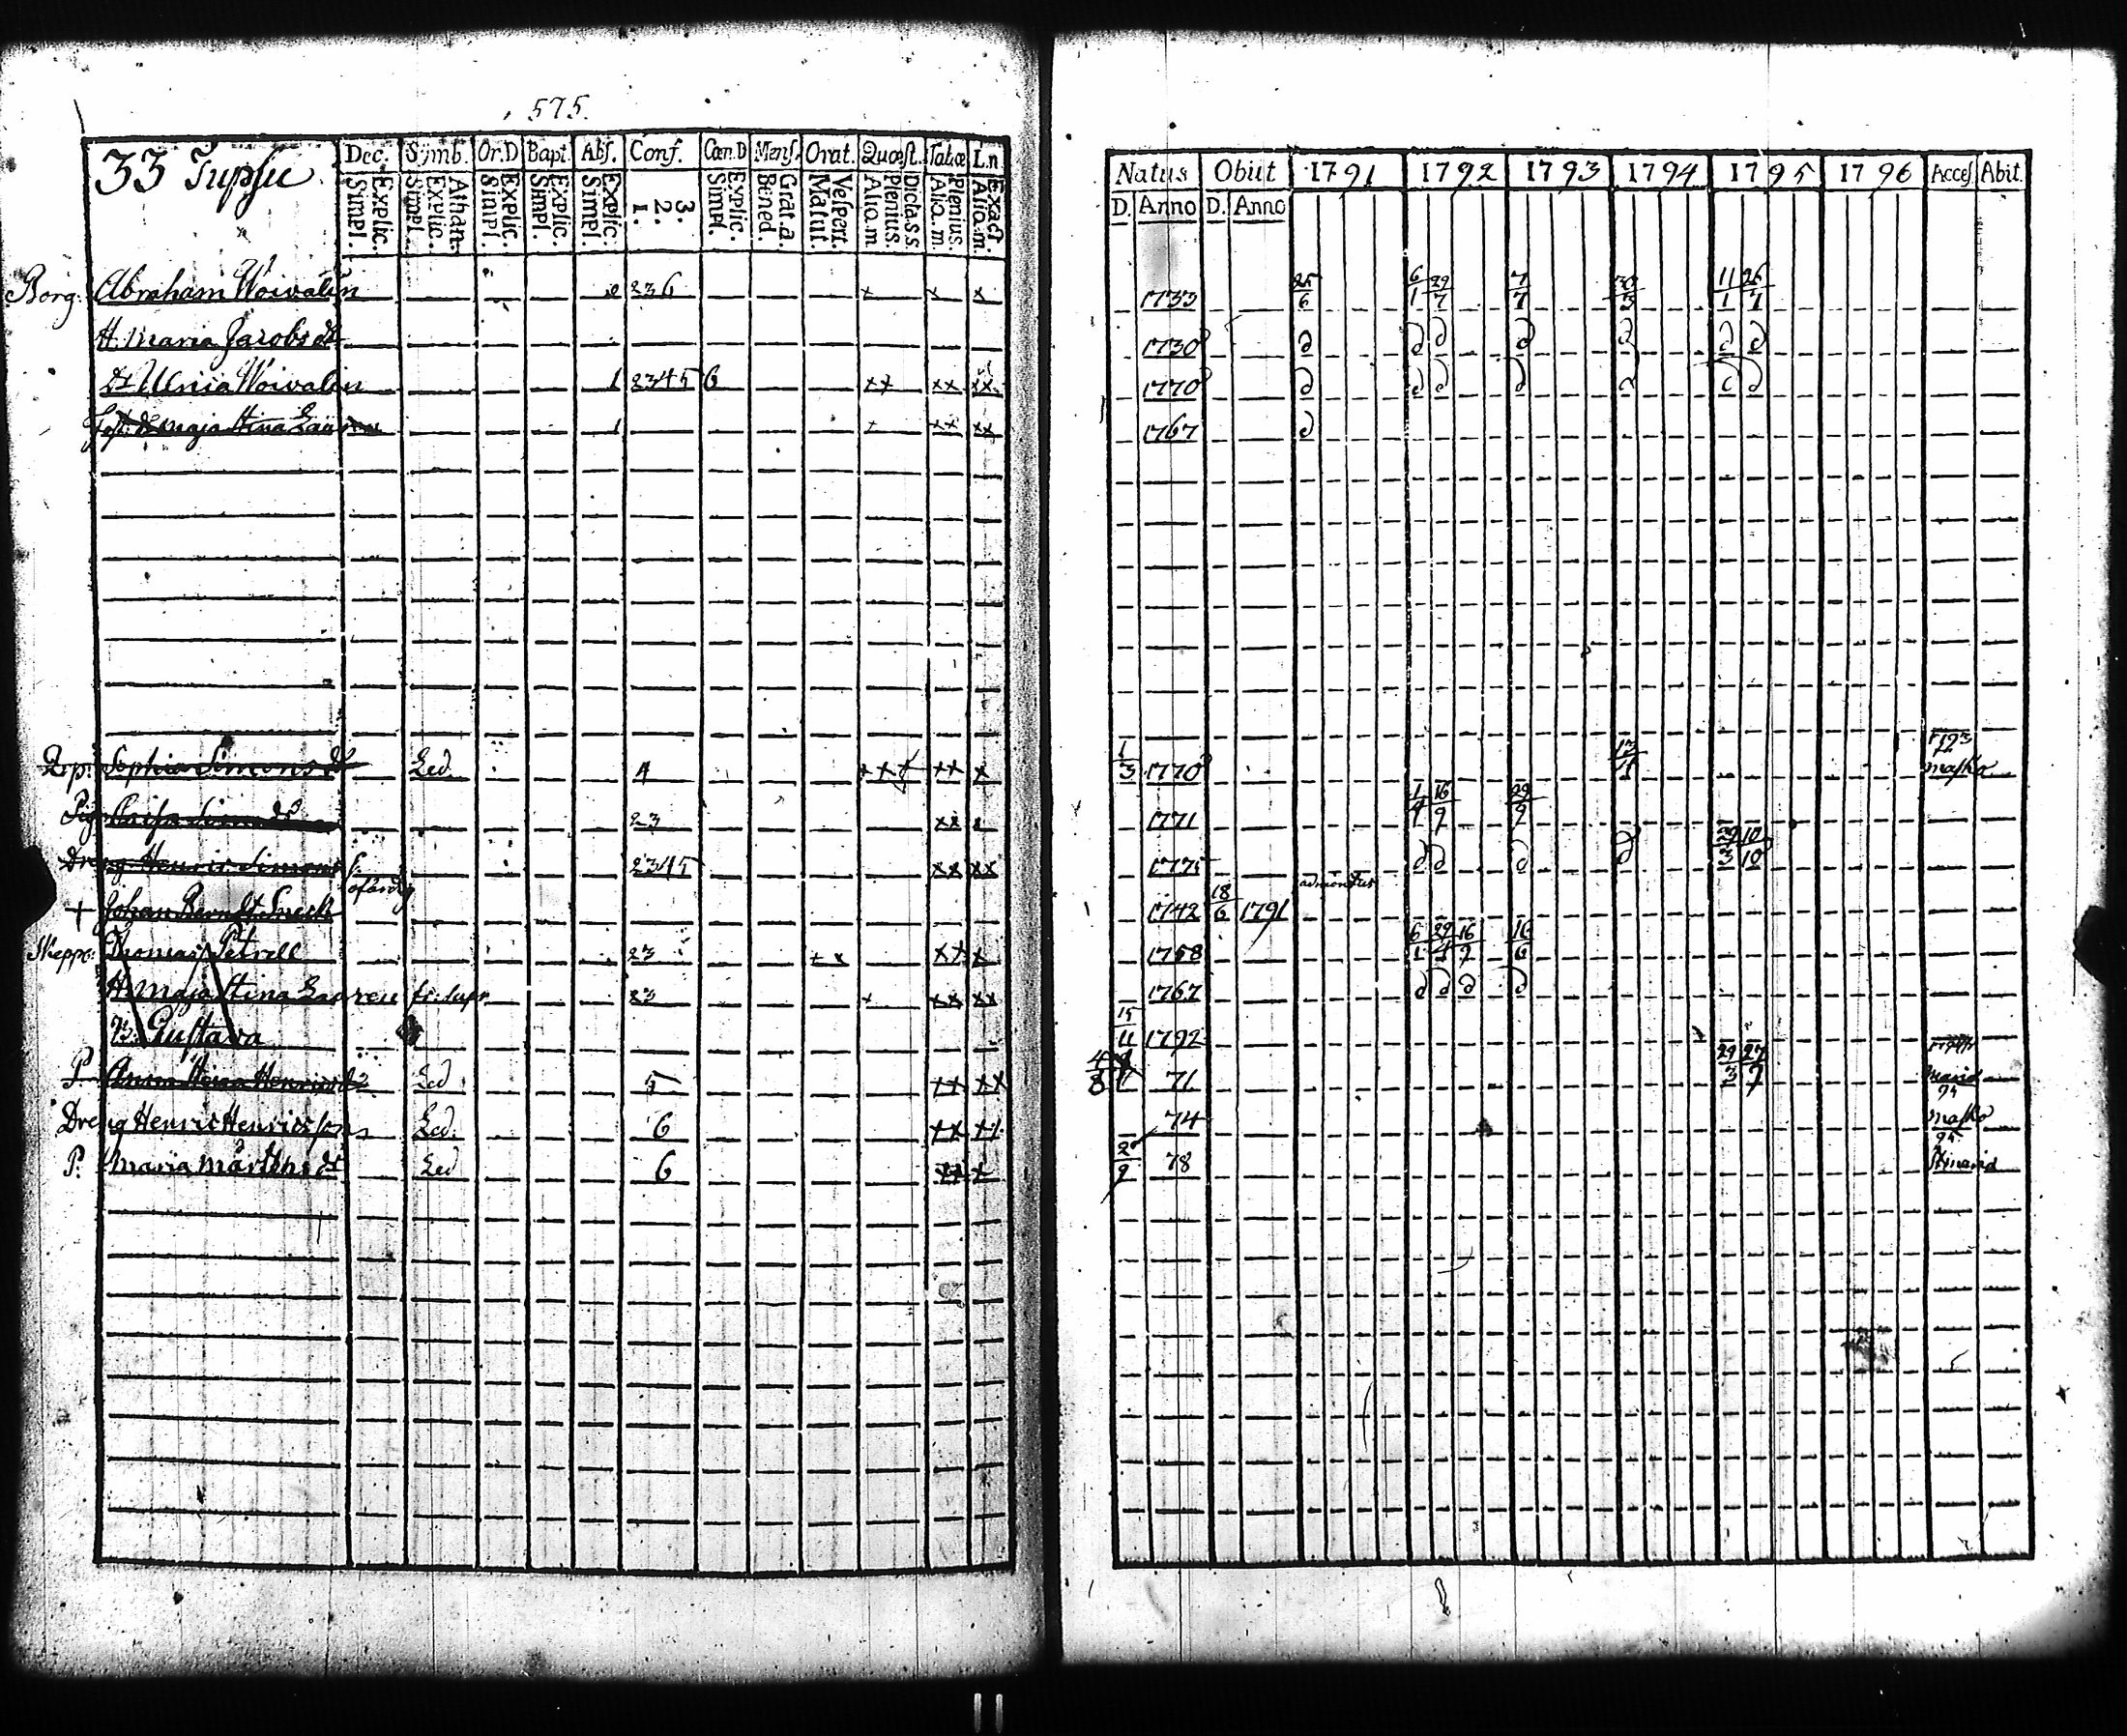 575.
33 Tupsu
Dec. Symb. Or.D Bapt. Abs. Conf. Cœn.D Mens. Orat. Quæst. Tabuæ L.n
Explic. Simpl. Athan. Explic. Simpl. Explic. Simpl. Explic. Simpl. Explic. Simpl. 3. 2. 1. Explic. Simpl. Grat.a. Bened. Vespert. Matut. Dicta.s.s. Plenius. Alio.m. Plenius. Alio.m. Exact. Alio.m.
Natus Obiit 1791 1792 1793 1794 1795 1796 Acces. Abit.
D. Anno D. Anno
Borg: Abraham Woivalin 236 x x x 1733 25/6 6/1 29/7 7/7 30/3 11/1 26/7
H. Maria Jacobs dr 1730 d d d d d d d
dr Ulrica Woivalin 1 2345 6 xx xx xx 1770 d d d d d d d
Maja Stina 1 x xx xx 1767 d
Sophia Simons dr Led. 4 xxx xx x 1/3 1770 Masko
Caisa Simons dr 23 xx x 1771 1/9 16/9 29/9
Dreng Henric Simons 2345 xx xx 1775 d d d d 29/3 10/10
+ Johan Berndt Sneck 1742 18/6 1791
Skeppo: Thomas Petrell 23 + x xx x 1758 6/1 29/4 16/9 16/6
H. Maja Stina Lauren 23 x xx xx 1767 d d d d
Gustava 15/11 1792
P. Anna Stina Henrics dr Led 5 xx xx 4/8 71 29/3 27/9
Dreng Henric Henricsson Led. 6 xx xx 74 Masko
P. Maria Mårtens dr Led 6 xx x 2/9 78 94